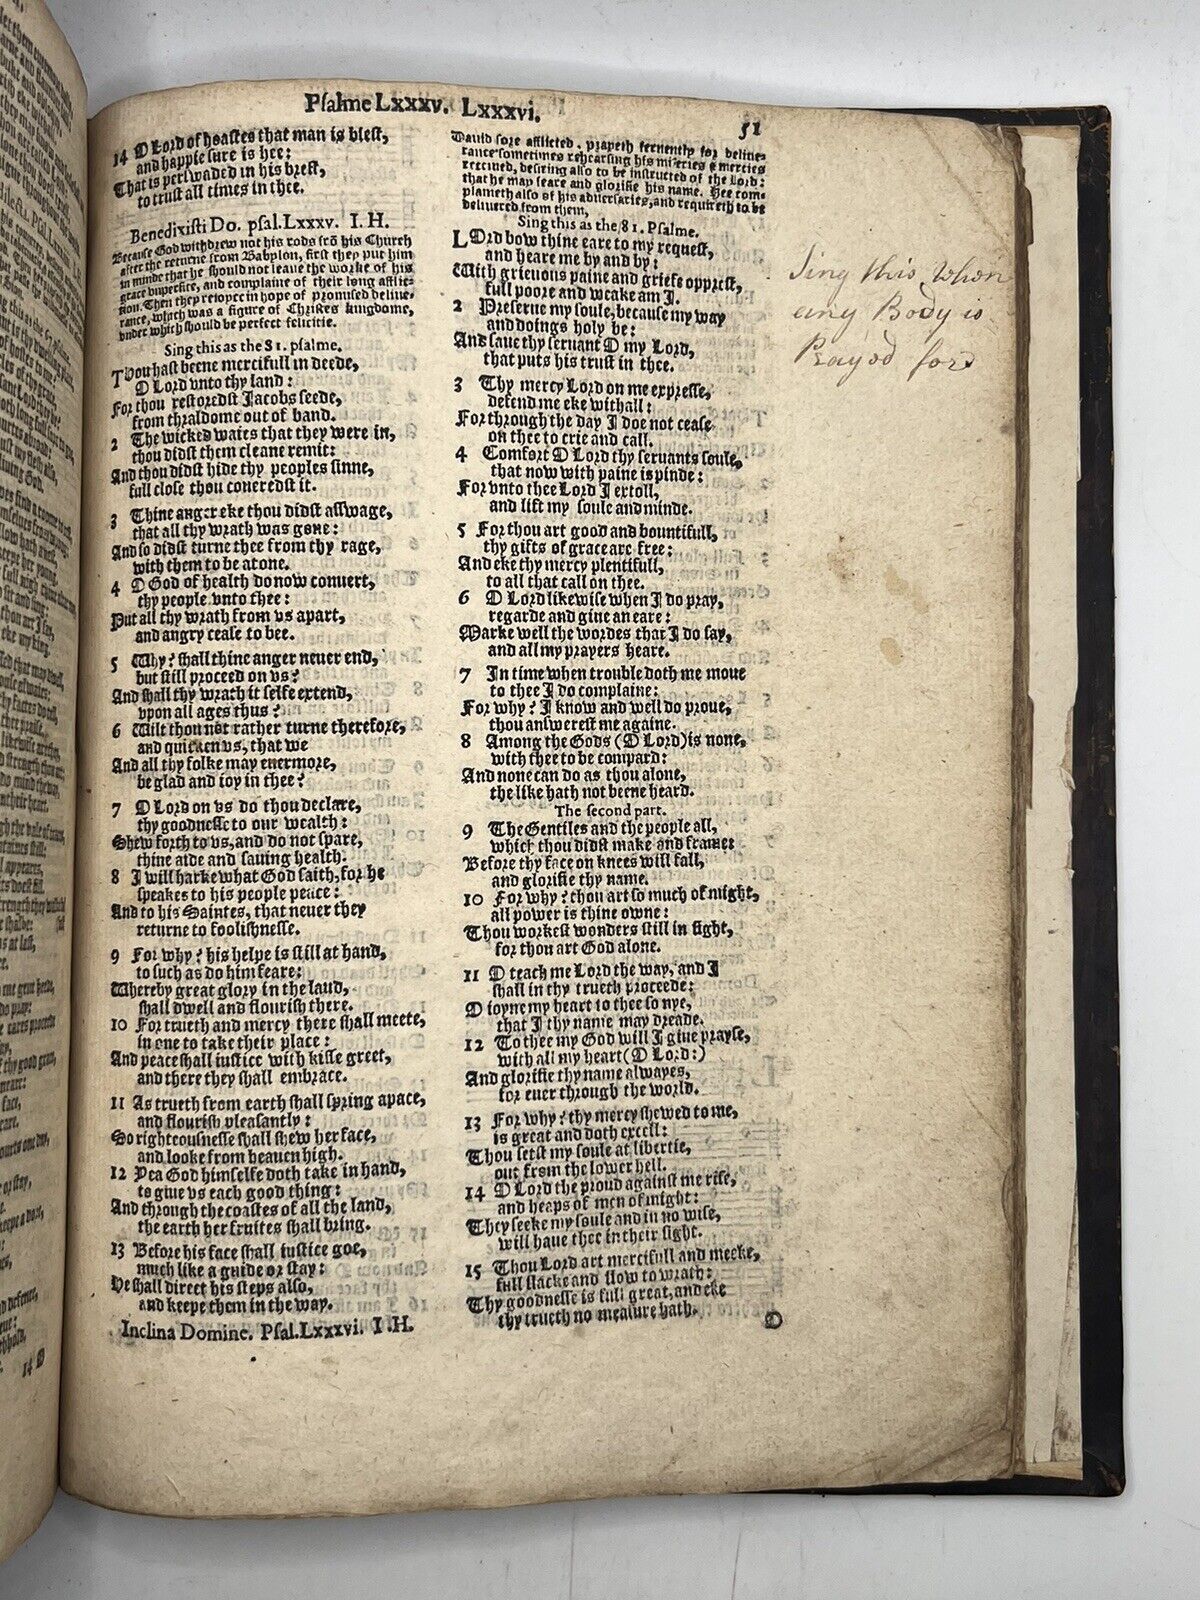 Psalme Lxxxv. Lxxxvi.
51
14 O Lord of hoastes that man is blest,
and happie sure is hee:
That is perswaded in his brest,
to trust all times in thee.
Benedixisti Do. psal. Lxxxv. I. H.
Because God withdrew not his rods frō his Church
after the returne from Babylon, first they put him
in minde that he should not leaue the worke of his
grace vnperfice, and complaine of their long afflic-
tion. Then they reioyce in hope of promised deliue-
rance, which was a figure of Christes kingdome,
vnder which should be perfect felicitie.
Sing this as the 81. psalme.
Thou hast beene mercifull in deede,
O Lord vnto thy land:
For thou restoredst Jacobs seede,
from thraldome out of band.
2 The wicked waies that they were in,
thou didst them cleane remit:
And thou didst hide thy peoples sinne,
full close thou coueredst it.
3 Thine anger eke thou didst asswage,
that all thy wrath was gone:
And so didst turne thee from thy rage,
with them to be atone.
4 O God of health do now conuert,
thy people vnto thee:
Put all thy wrath from vs apart,
and angry cease to bee.
5 Why? shall thine anger neuer end,
but still proceed on vs?
And shall thy wrath it selfe extend,
vpon all ages thus?
6 Wilt thou not rather turne therefore,
and quicken vs, that we
And all thy folke may euermore,
be glad and ioy in thee?
7 O Lord on vs do thou declare,
thy goodnesse to our wealth:
Shew forth to vs, and do not spare,
thine aide and sauing health.
8 I will harke what God saith, for he
speakes to his people peace:
And to his Saintes, that neuer they
returne to foolishnesse.
9 For why? his helpe is still at hand,
to such as do him feare:
Whereby great glory in the land,
shall dwell and flourish there.
10 For trueth and mercy there shall meete,
in one to take their place:
And peace shall iustice with kisse greet,
and there they shall embrace.
11 As trueth from earth shall spring apace,
and flourish pleasantly:
So righteousnesse shall shew her face,
and looke from heauen high.
12 Yea God himselfe doth take in hand,
to giue vs each good thing:
And through the coastes of all the land,
the earth her fruites shall bring.
13 Before his face shall iustice goe,
much like a guide or stay:
He shall direct his steps also,
and keepe them in the way.
Inclina Domine. Psal. Lxxxvi. I .H.
Dauid sore afflicted, prayeth feruently for deliue-
rance sometimes rehearsing his miseries & mercies
receiued, desiring also to be instructed of the Lord:
that he may feare and glorifie his name. Hee com-
plaineth also of his aduersaries, and requireth to be
deliuered from them,
Sing this as the 81. Psalme.
LOrd bow thine eare to my request,
and heare me by and by:
With grieuous paine and griefe opprest,
full poore and weake am I.
2 Preserue my soule, because my way
and doings holy be:
And saue thy seruant O my Lord,
that puts his trust in thee.
3 Thy mercy Lord on me expresse,
defend me eke withall:
For through the day I doe not cease
on thee to crie and call.
4 Comfort O Lord thy seruants soule,
that now with paine is pinde:
For vnto thee Lord I extoll,
and lift my soule and minde.
5 For thou art good and bountifull,
thy gifts of grace are free:
And eke thy mercy plentifull,
to all that call on thee.
6 O Lord likewise when I do pray,
regarde and giue an eare:
Marke well the wordes that I do say,
and all my prayers heare.
7 In time when trouble doth me moue
to thee I do complaine:
For why? I know and well do proue,
thou answerest me againe.
8 Among the Gods (O Lord) is none,
with thee to be compard:
And none can do as thou alone,
the like hath not beene heard.
The second part.
9 The Gentiles and the people all,
which thou didst make and frame:
Before thy face on knees will fall,
and glorifie thy name.
10 For why? thou art so much of might,
all power is thine owne:
Thou workest wonders still in sight,
for thou art God alone.
11 O teach me Lord the way, and I
shall in thy trueth proceede:
O ioyne my heart to thee so nye,
that I thy name may dreade.
12 To thee my God will I giue prayse,
with all my heart (O Lord:)
And glorifie thy name alwayes,
for euer through the world.
13 For why? thy mercy shewed to me,
is great and doth excell:
Thou setst my soule at libertie,
out from the lower hell.
14 O Lord the proud against me rise,
and heaps of men of might:
They seeke my soule and in no wise,
will haue thee in their sight.
15 Thou Lord art mercifull and meeke,
full slacke and slow to wrath:
Thy goodnesse is full great, and eke
thy trueth no measure hath.
O
Sing this Whon
any Body is
Prayod for